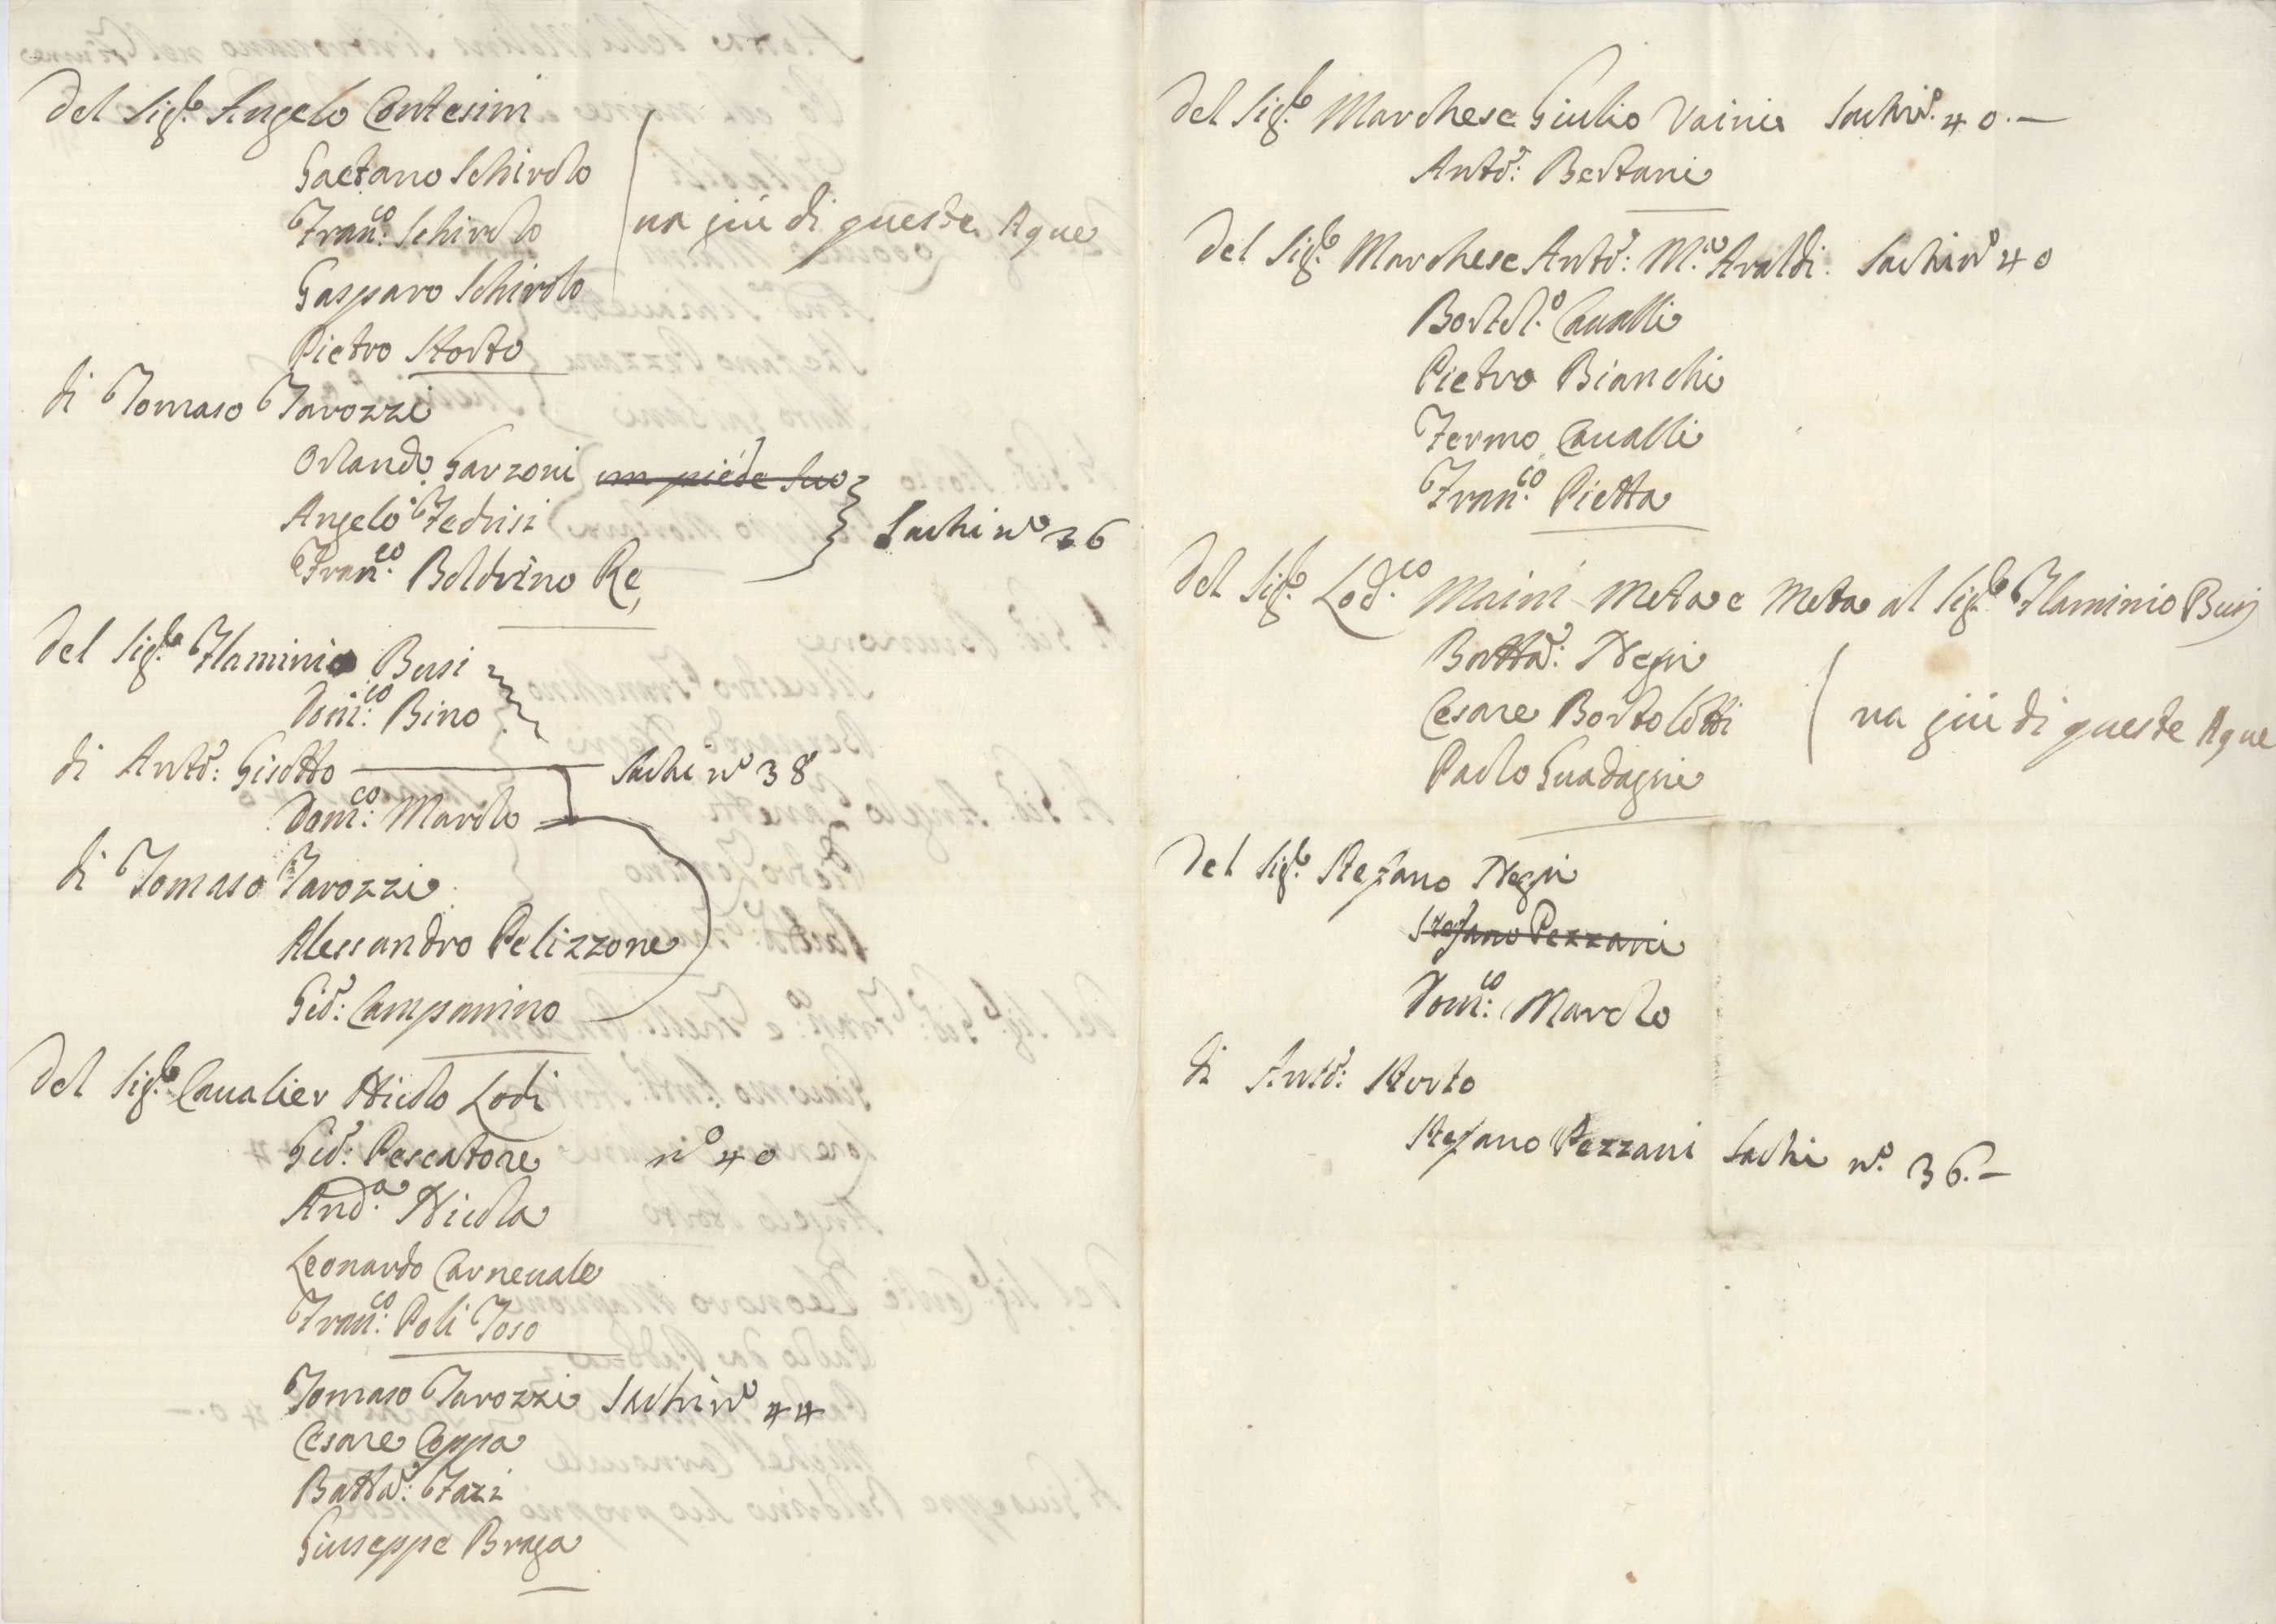 Del Sig.r Angelo Contesini
Gaetano Schirolo
Fran.co Schirolo
Gasparo Schirolo
va giù di queste Aque
Pietro Storto
di Tomaso Tarozzi
Orlando Garzoni un piède suo
Angelo Fedrisi
Fran.co Boldrino Re,
Sachi n.o 36
Del Sig.r Flaminio Busi
Dom.co Bino
di Ant.o: Gisotto Sachi n.o 38
Dom.co: Marolo
di Tomaso Tarozzi
Alessandro Pelizzone
Gio: Campanino
Del Sig.r Caualier Nicolo Lodi
Gio: Pescatore n.o 40
And.a Nicola
Leonardo Carneuale
Fran.co: Poli Toso
Tomaso Tarozzi Sachi n.o 44
Cesare Coppa
Batta: Fazi
Giuseppe Braga
Del Sig.r Marchese Giulio Vaini Sachi n.o 40.—
Ant.o: Bertani
Del Sig.r Marchese Ant.o: M.a Araldi. Sachi n.o 40
Bortol.o Caualli
Pietro Bianchi
Fermo Caualli
Fran.co Pietta
Del Sig.r Lod.co Maini Meta e Meta al Sig.r Flaminio Busi
Batta: Negri
Cesare Bortolotti
va giù di queste Aque
Paolo Guadagni
Del Sig.r Stefano Negri
Stefano Pezzani
Dom.co: Marolo
di Ant.o: Storto
Stefano Pezzani Sachi n.o 36.—